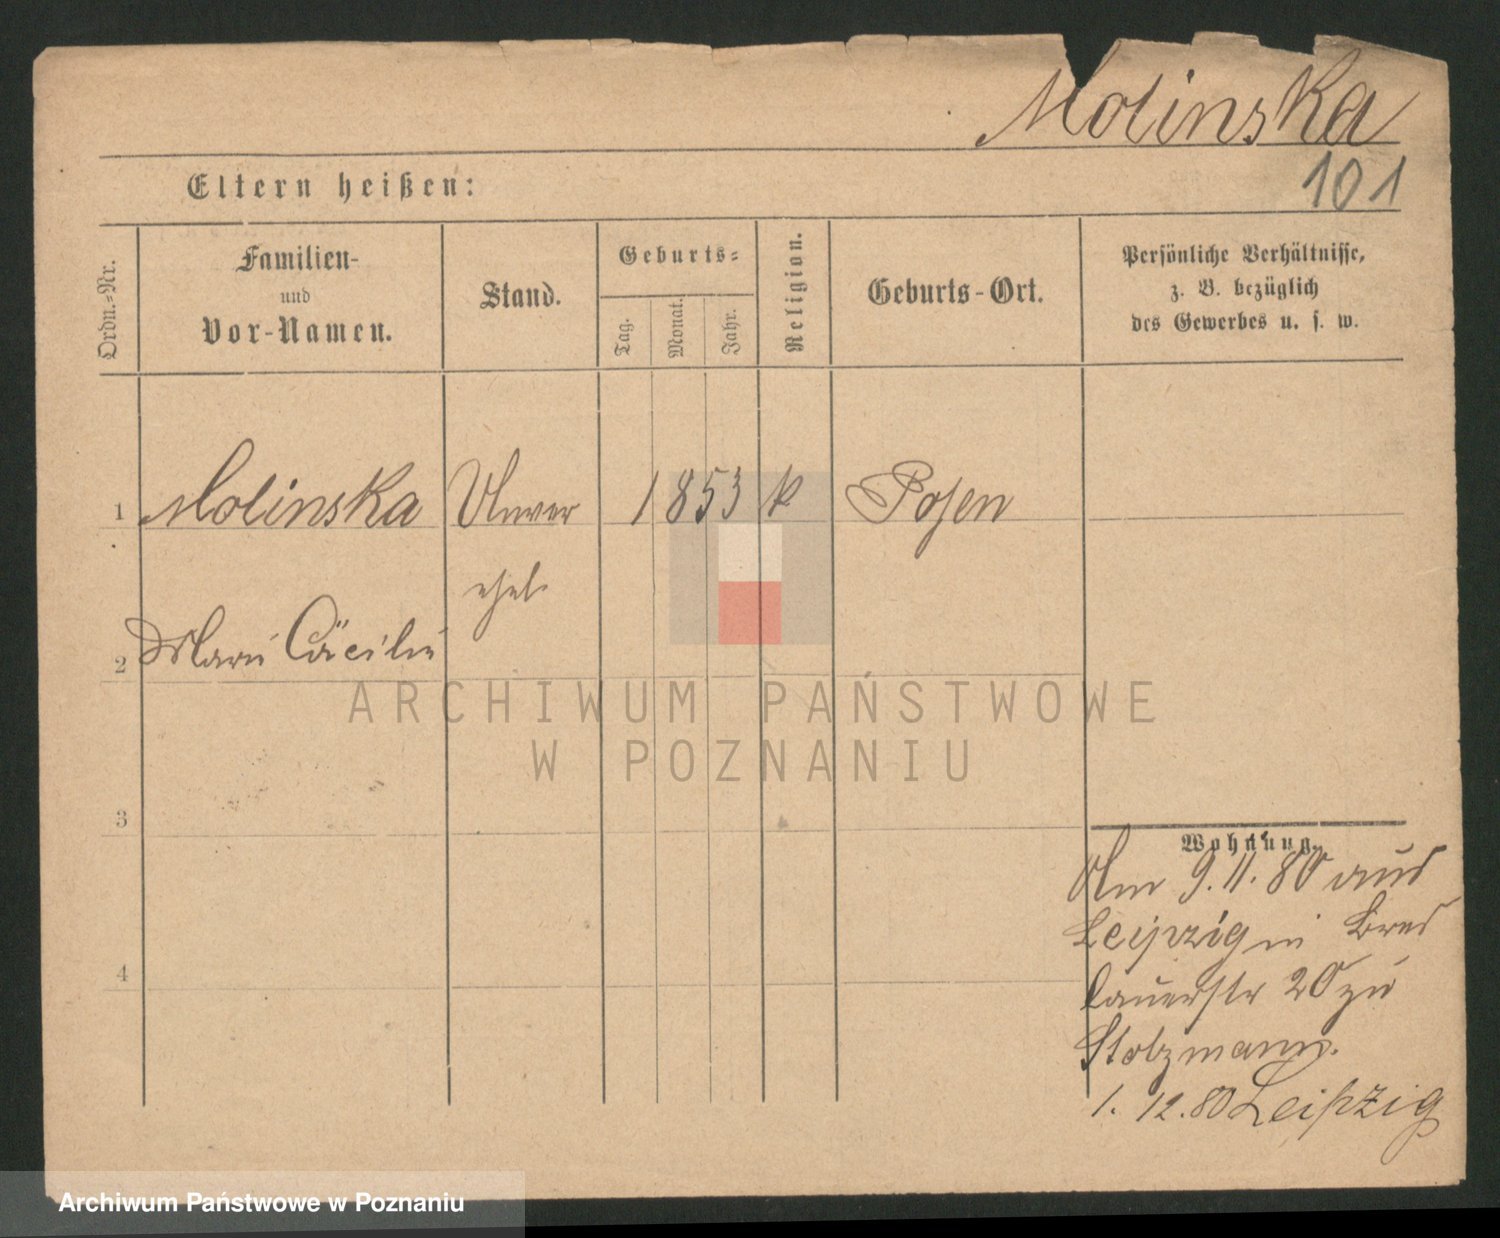 Molinska
101
Eltern heißen:
Ordn.-Nr.
Familien-
und
Vor-Namen.
Stand.
Geburts-
Tag.
Monat.
Jahr.
Religion.
Geburts-Ort.
Persönliche Verhältnisse,
z. B. bezüglich
des Gewerbes u. s. w.
1 Molinska Unver 1853 k Posen
ehel.
2 Marie Cäcilie
ARCHIWUM PAŃSTWOWE
W POZNANIU
3
4
Wohnung.
Am 9.11.80 aus
Leipzig in Bres
lauerstr 20 zu
Stolzmann.
1. 12.80 Leipzig
Archiwum Państwowe w Poznaniu